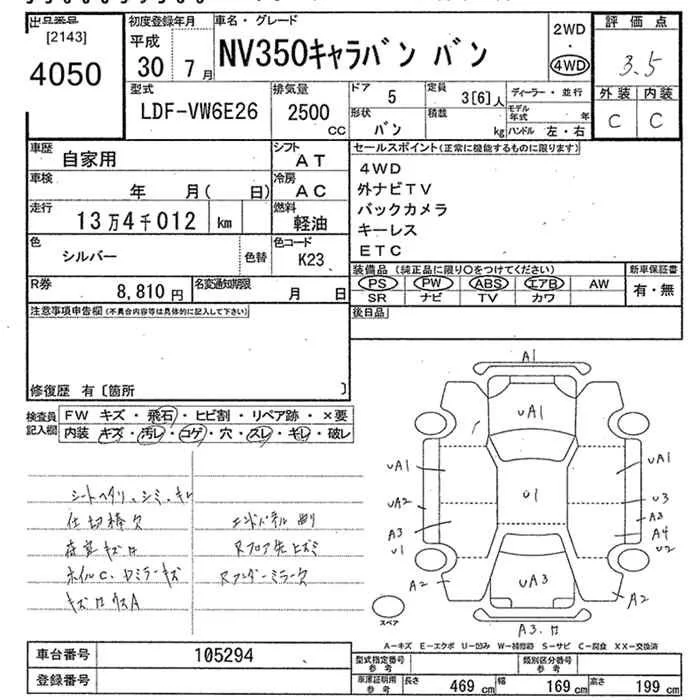 出品番号
[2143]
4050
初度登録年月
平成
30 7月
車名・グレード
NV350キャラバン バン
2WD
・
4WD
評価点
3.5
外装 内装
C C
型式
LDF-VW6E26
排気量
2500
cc
ドア 5
形状
バン
定員 3[6]人
積載 kg
ディーラー・並行
モデル年式 年
ハンドル 左・右
車歴 自家用
シフト AT
車検 年 月( 日)
冷房 AC
走行 13万4千012 km
燃料 軽油
色 シルバー 色替
色コード K23
R券 8,810円
名変通知期限 月 日
セールスポイント(正常に機能するものに限ります)
4WD
外ナビTV
バックカメラ
キーレス
ETC
装備品 (純正品に限り○をつけてください)
PS PW ABS エアB AW
SR ナビ TV カワ
新車保証書
有・無
後日品
注意事項申告欄(不具合内容等は具体的に記入して下さい)
修復歴 有〔箇所 〕
検査員記入欄
FW キズ・飛石・ヒビ割・リペア跡・×要
内装 キズ・汚レ・コゲ・穴・スレ・キレ・破レ
シートヘタリ、シミ、キレ
仕切棒欠
荷室キズ
A1
UA1
UA1
UA1
UA2
U1
U3
A3
A3
U1
A4
U2
A2
UA3
A2
A3
スペア
A-キズ E-エクボ U-凹み W-補修跡 S-サビ C-腐食 XX-交換済
車台番号 105294
登録番号
型式指定番号 参考
類別区分番号 参考
車庫証明用 参考
長さ 469 cm
幅 169 cm
高さ 199 cm